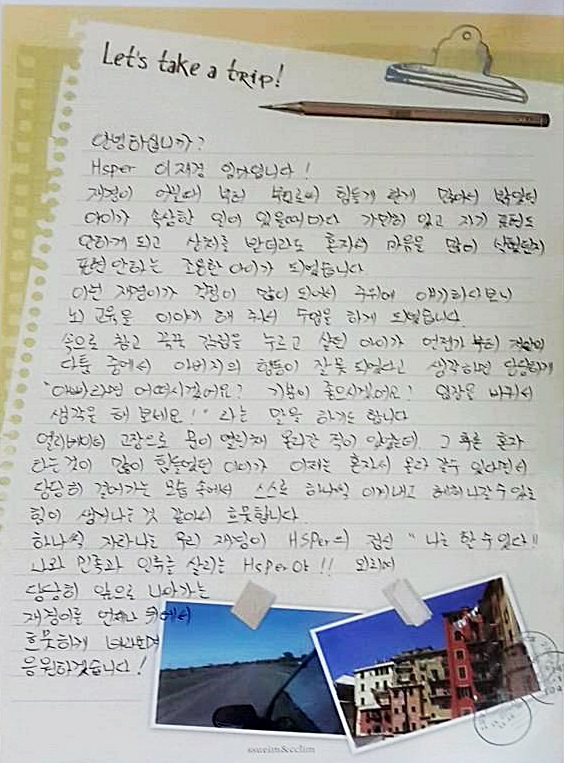 Let's take a trip!
안녕하십니까?
Hsper 이재경 입니다!
재경이 어릴때 부터 부모로써 힘들게 한게 많아서 밝았던
아이가 속상한 일이 있을때마다 가만히 있고 자기 표현도
안하게 되고 상처를 받더라도 혼자서 마음을 많이 삭혔는지
표현 안하는 조용한 아이가 되었습니다
이런 재경이가 걱정이 많이 되어서 주위에 얘기하다보니
뇌 교육을 이야기 해 주셔서 수업을 하게 되었습니다.
속으로 참고 꾹꾹 감정을 누르고 살던 아이가 언젠가 부터
다툼 중에서 아버지의 행동이 잘못 되었다고 생각하면 당당하게
"아빠라면 어떠시겠어요? 기분이 좋으시겠어요? 입장을 바꿔서
생각을 해 보세요!" 라는 말을 하기도 합니다
엘리베이터 고장으로 문이 열린채 올라간 적이 있었는데. 그 후론 혼자
타는것이 많이 힘들었던 아이가 이제는 혼자서 올라 갈수 있다면서
당당히 걸어가는 모습 속에서 스스로 하나씩 이겨내고 헤쳐나갈수있는
힘이 생겨나는 것 같아서 흐뭇합니다.
하나씩 자라나는 우리 재경이 HSPer의 정신 "나는 할수있다!!
나와 민족과 인류를 살리는 HSPer야!!
당당히 앞으로 나아가는
재경이를 언제나 뒤에서
흐뭇하게 바라보며
응원하겠습니다!
ssueim&cclim